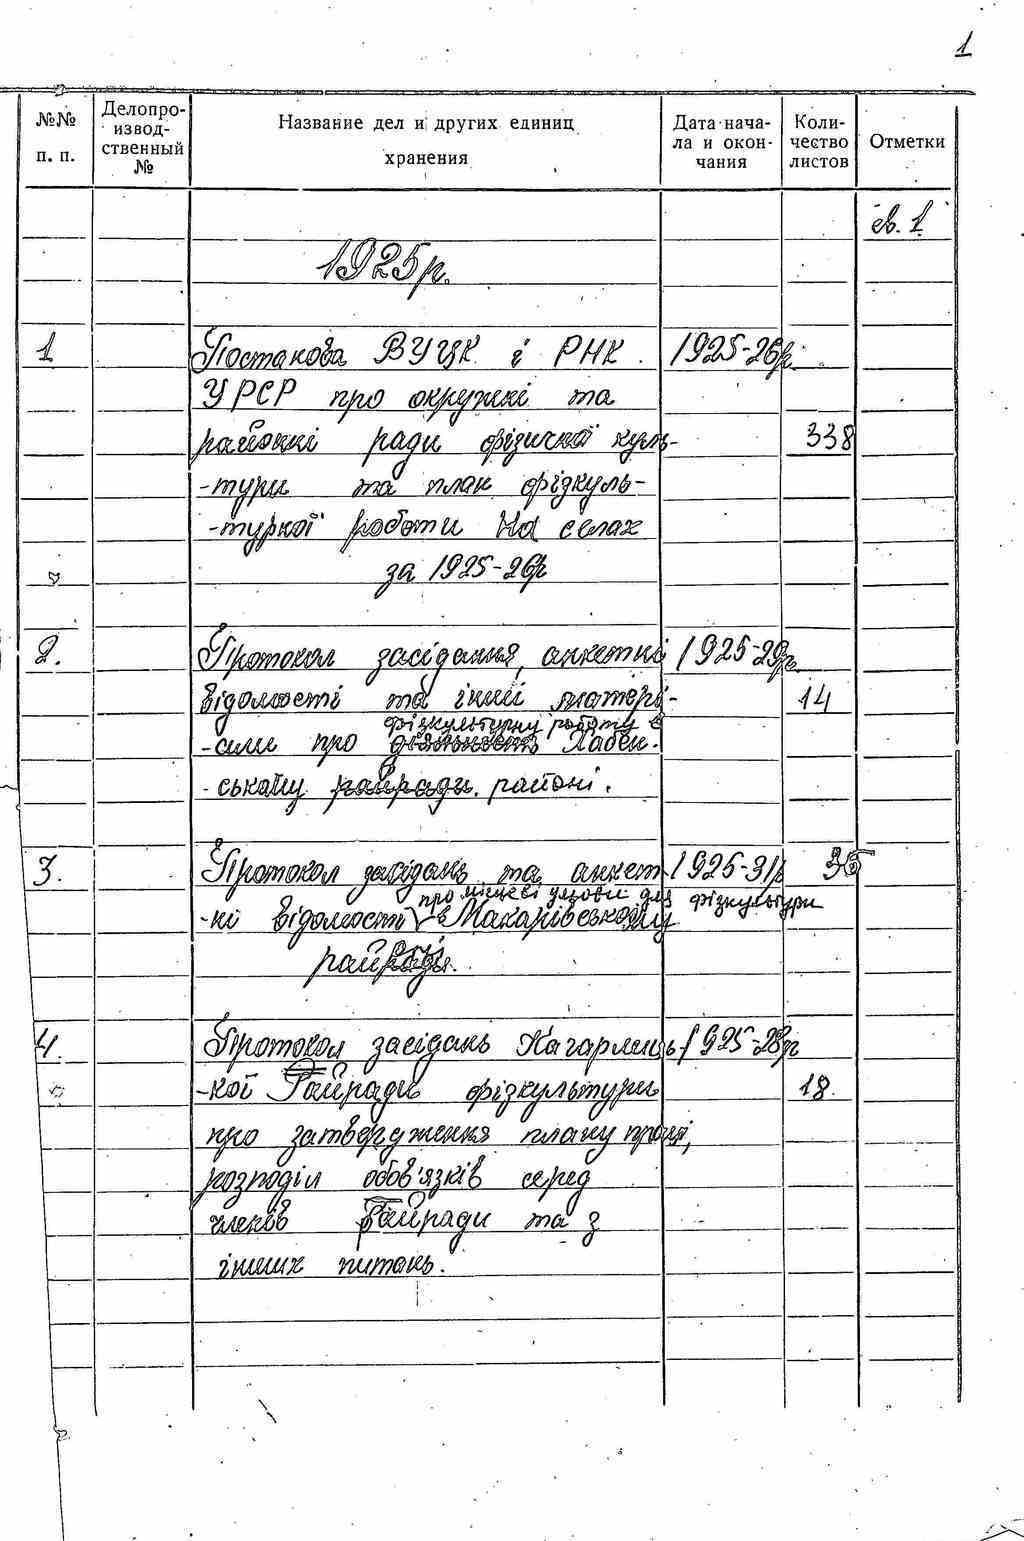 1
№№ п. п.
Делопроизводственный №
Название дел и других единиц хранения
Дата начала и окончания
Количество листов
Отметки
св. 1
1925р.
1 Постанова ВУЦК і РНК 1925-26р.
УРСР про окружні та
районні ради фізичної куль- 338
-тури та план фізкуль-
-турної роботи на селах
за 1925-26р
2. Протокол засідання, анкетні 1925-29р.
відомості та інші матері- 14
фізкультурну роботу в
-али про діяльність Хабен-
-ському райради. районі.
3. Протокол засідань та анкет- 1925-31р 36
про місцеві умови для фізкультури
-ні відомості в Макарівському
райраді.
4. Протокол засідань Кагарлиць- 1925-28р
-кої Райради фізкультури 18.
про затвердження плану праці,
розподіл обов'язків серед
членів Райради та з
інших питань.